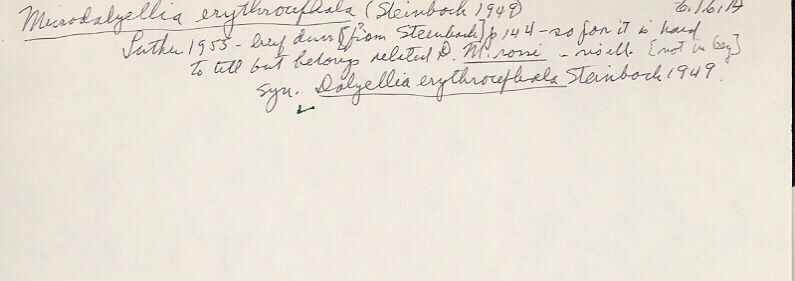 Microdalyellia erythrocephala (Steinbock 1949)
Luther 1955 - brief descr [from Steinbock] p 144 - so far it is hard
to tell but belongs related to M. rossi - no ill. [not in key]
syn. Dalyellia erythrocephala Steinbock 1949.